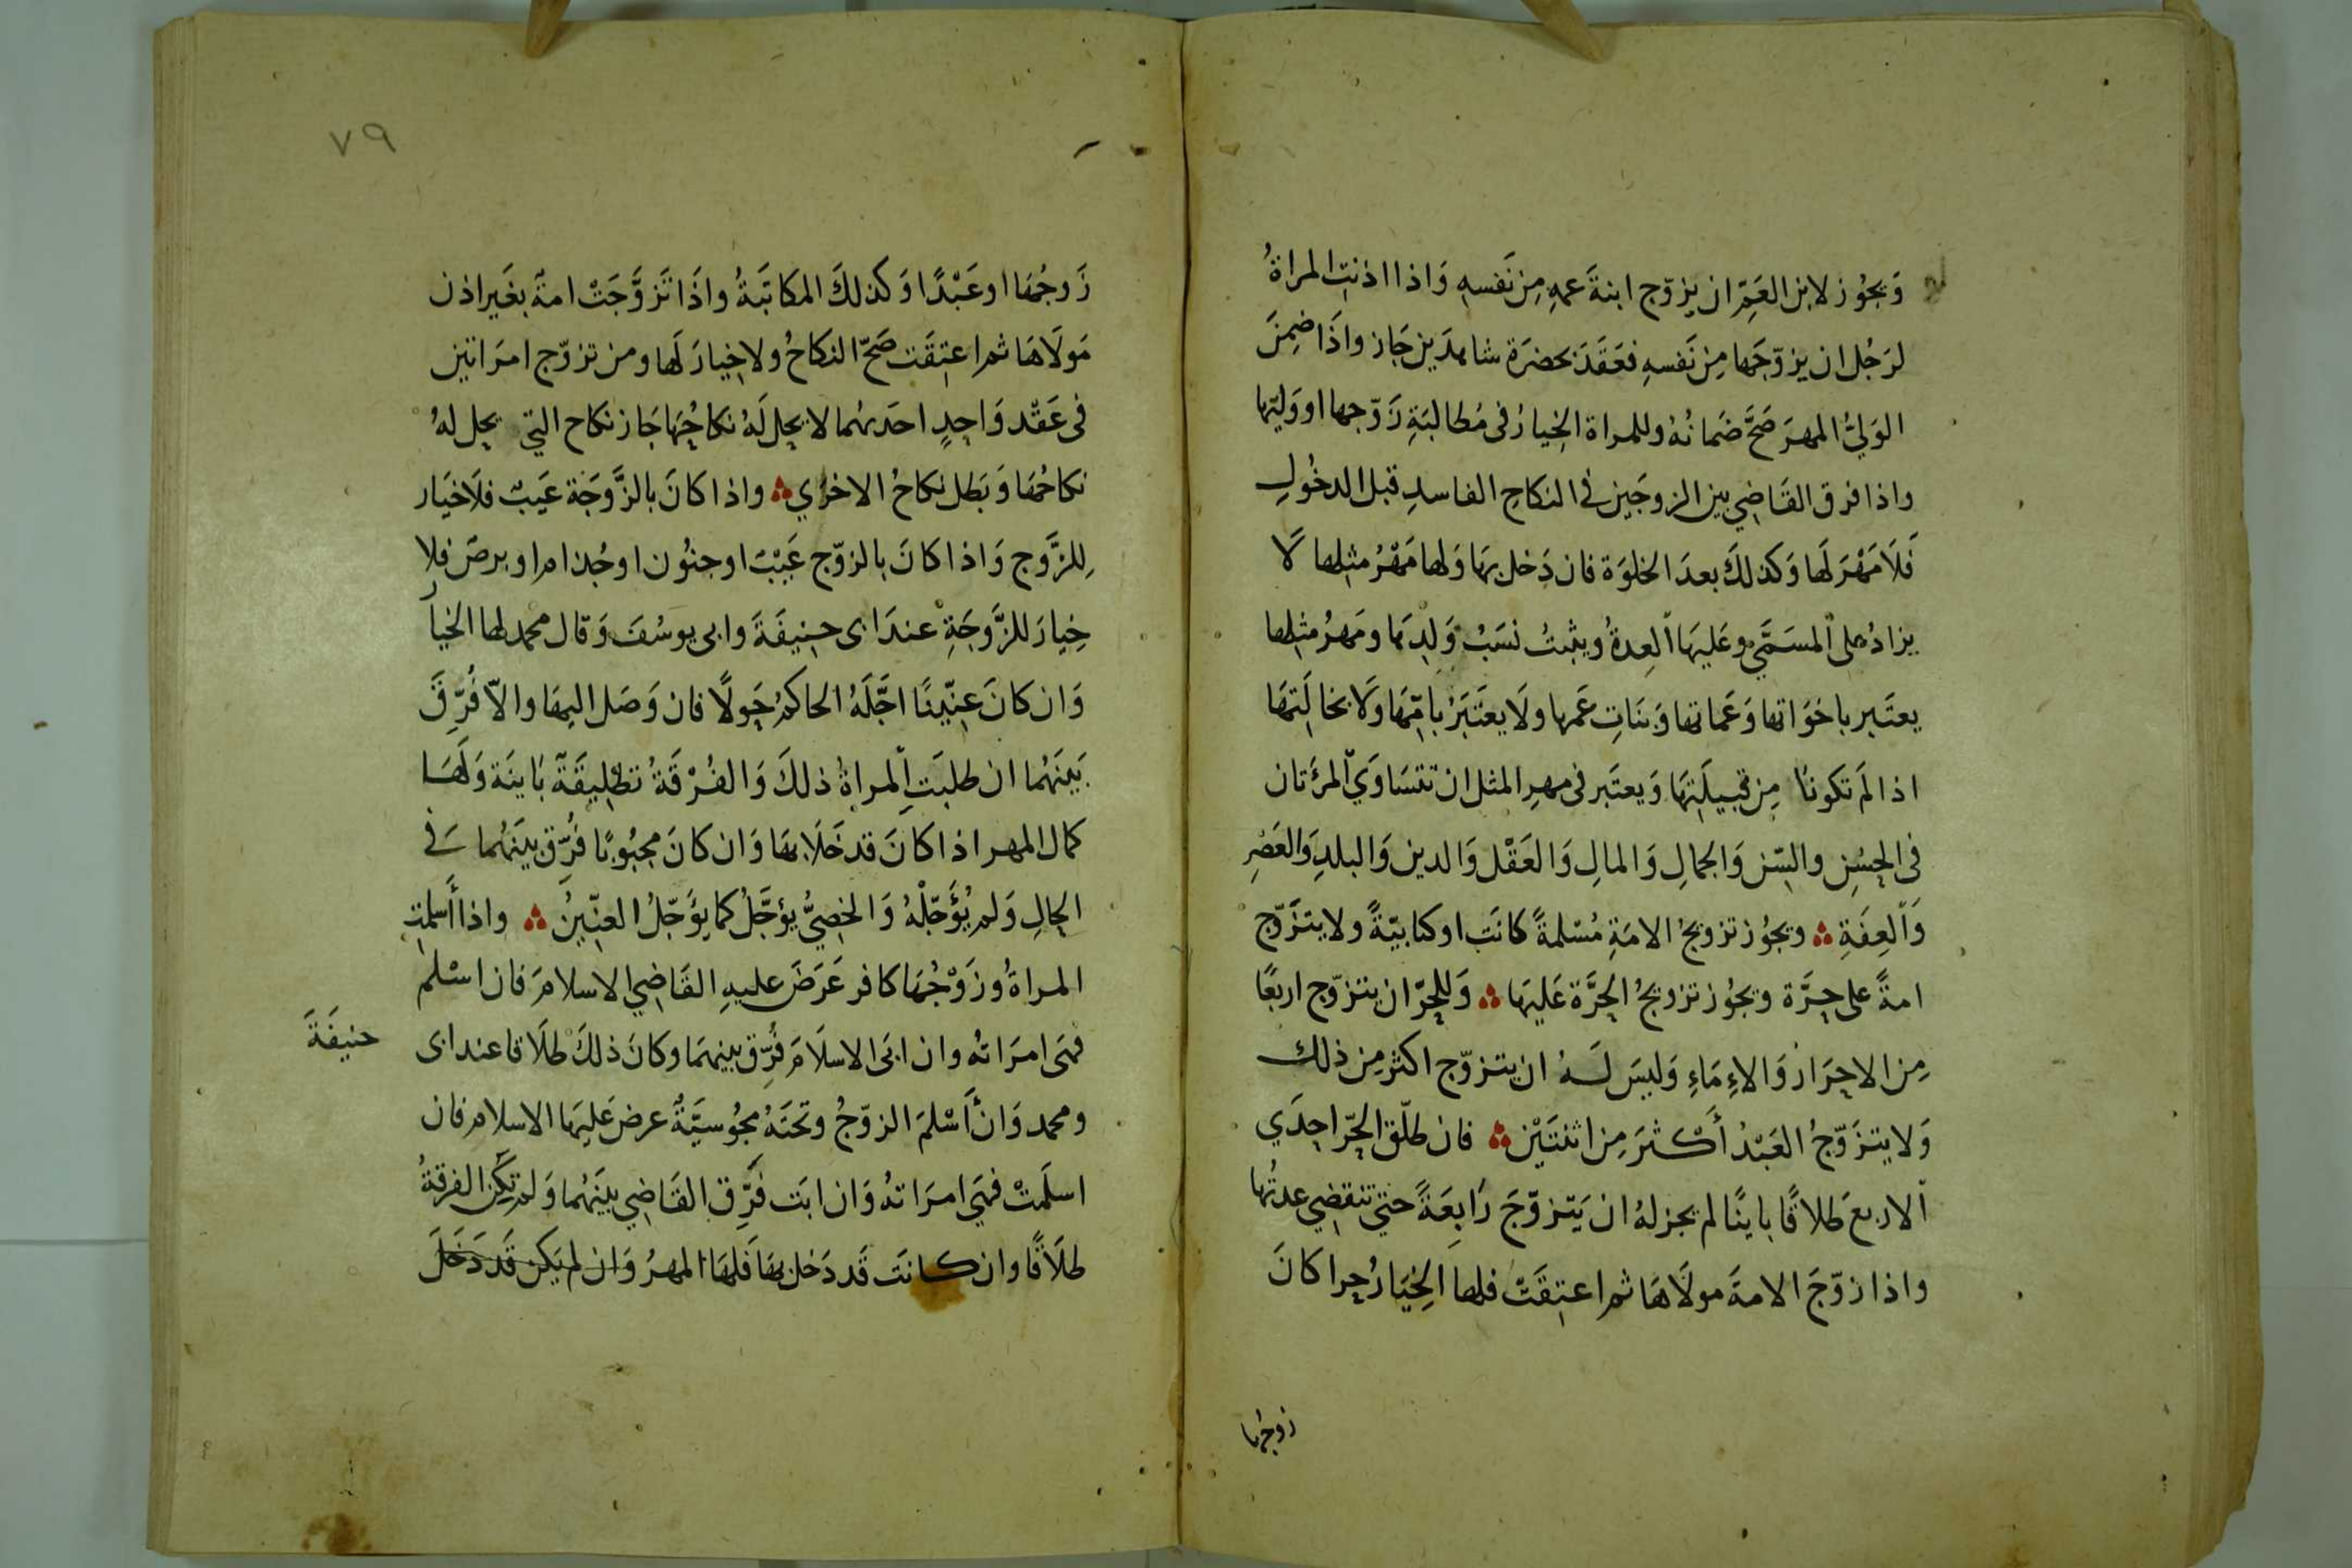 وَيجُوز لابن العَمِّ ان يزوّج ابنةَ عمهِ مِن نَفسهِ وَاذا اذنتِ المراةُ
لرَجُل ان يزوّجَها مِن نَفسهِ فعَقَدَ بحضرَة شاهدَين جَاز واذَا ضِمنَ
الوَليُّ المهرَ صَحَّ ضَمانُهُ وللمراة الخِيارُ فى مُطالبَةِ زَوّجها او وَليّها
واذا فرق القَاضِي بين الزوجَين في النكاحِ الفاسدِ قبل الدخُولِ
فَلَا مَهْرَ لَها وَكذلكَ بعدَ الخلوَة فان دَخل بهَا وَلها مَهْرُ مثلِها لَا
يزادُ على المسَمَّى وعَليهَا العِدةُ ويثبتُ نسَبُ وَلدِهَا ومَهرُ مثلِها
يعتَبر باخوَاتها وَعَماتها وَبنَاتِ عَمها ولَا يعتَبَرُ بامِّهَا وَلَا بخالَتِهَا
اذا لَم تكونَا مِن قبيلَتِهَا وَيعتَبر فى مهرِ المثل ان تتسَاوَي المرَتان
فى الحسُنِ والسِّن وَالجمالِ وَالمالِ وَالعَقْل وَالدين وَالبلدِ وَالعَصْرِ
وَالعِفَةِ ؞ ويجُوز تزويجُ الامَةِ مُسْلمةً كانَت اوكتابيّةً ولا يتزَوّج
امةً على حرَّة ويجُوز تزويجُ الحرَّة عَليهَا ؞ وَللحرّ ان يتزوّج اربعًا
مِن الاحرَار وَالاِمَاءِ وَليسَ لَهُ ان يتزوّج اكثر مِن ذلك
وَلا يتزَوّجُ العَبْدُ أكْثَرَ مِن اثنتَيْن ؞ فان طلّق الحرّ احِدَي
الاربعَ طلاقًا باينًا لم يجز لهُ ان يَتزوّجَ رَابِعَةً حتي تنقضِي عدتُها
واذا زوّجَ الامةَ مولَاهَا ثم اعتِقَتْ فلها الخِيَارُ حرا كانَ
زوجُها
٧٩
زَوجُهَا اوعَبْدًا وَكذلكَ المكاتَبَةُ واذَا تَزوَّجَتْ امةٌ بغَير اذن
مَولَاهَا ثم اعتِقَت صَحّ النكَاحُ ولا خِيارَ لَها ومن تزوّج امرَاتين
فى عَقْد وَاحِدٍ احَدهُما لا يحل لَهُ نكاحُهَا جَاز نكاح التي يحل لهُ
نكاحُهَا وَبَطل نكاحُ الاخري ؞ واذا كانَ بالزَّوجَة عَيبٌ فلَا خيَار
لِلزَّوج وَاذا كانَ بالزوّج عَيْبٌ اوجنُون اوجُذام اوبرص فلا
خِيارَ للزَّوجَةِ عندَ ابى حنِيفَةَ وابى يوسُفَ وَقال محمد لها الخيا
وَان كانَ عِنّينًا اجَّلَهُ الحاكمُ حَولًا فان وَصَل اليهَا والّا فُرِّقَ
بَينَهُما ان طلبَتِ المراةُ ذلكَ وَالفُرْقَةُ تطْلِيقَةٌ بَاينَة وَلَهَا
كمال المهر اذا كانَ قد خَلَا بهَا وَان كانَ مجبُوبًا فُرّق بينَهُما في
الحالِ وَلم يُؤَجّلْهُ وَالخصِيُّ يؤجَّلُ كما يؤَجّلُ العنّينُ ؞ واذا أسلمت
المراةُ وزَوْجُهَا كافر عَرَضَ عليهِ القَاضِي الاسلامَ فان اسْلم
فهَى امرَاتهُ وان ابَى الاسلَامَ فُرِّق بينهمَا وكانَ ذلكَ طلَاقا عند ابى
حنيفَةَ
ومحمد وَان أَسْلمَ الزوّجُ وتحتَهُ مجُوسيَّةٌ عرض عَليهَا الاسلام فان
اسلَمتْ فهَي امرَاتهُ وَان ابَت فُرِّق القَاضِي بينَهُما وَلم تكُن الفرقةُ
طلَاقًا وان كانَت قَد دَخل بهَا فَلهَا المهرُ وَان لم يَكن قَد دَخَلَ